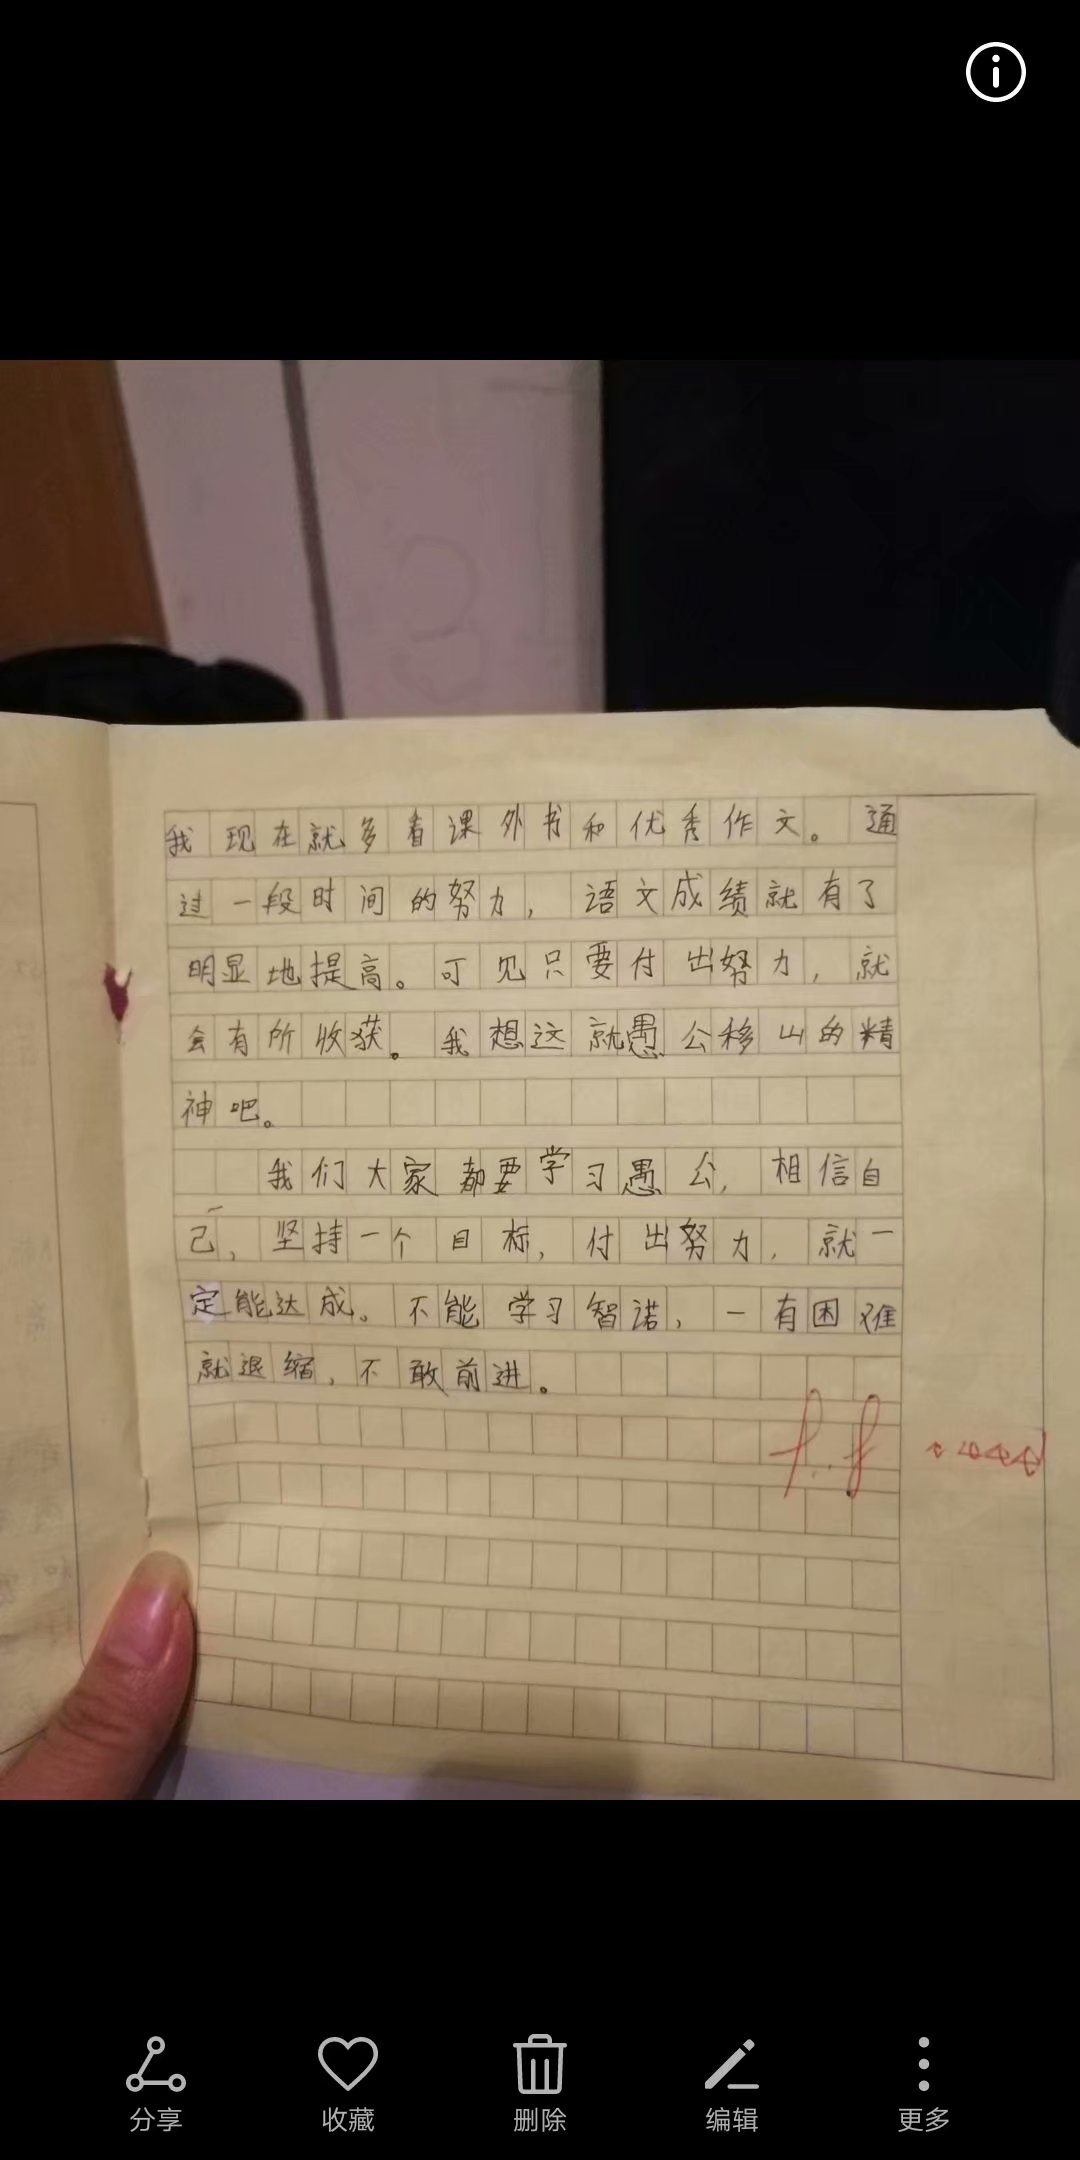 我现在就多看课外书和优秀作文。通
过一段时间的努力，语文成绩就有了
明显地提高。可见只要付出努力，就
会有所收获。我想这就愚公移山的精
神吧。
我们大家都要学习愚公，相信自
己，坚持一个目标，付出努力，就一
定能达成。不能学习智诺，一有困难
就退缩，不敢前进。
分享
收藏
删除
编辑
更多